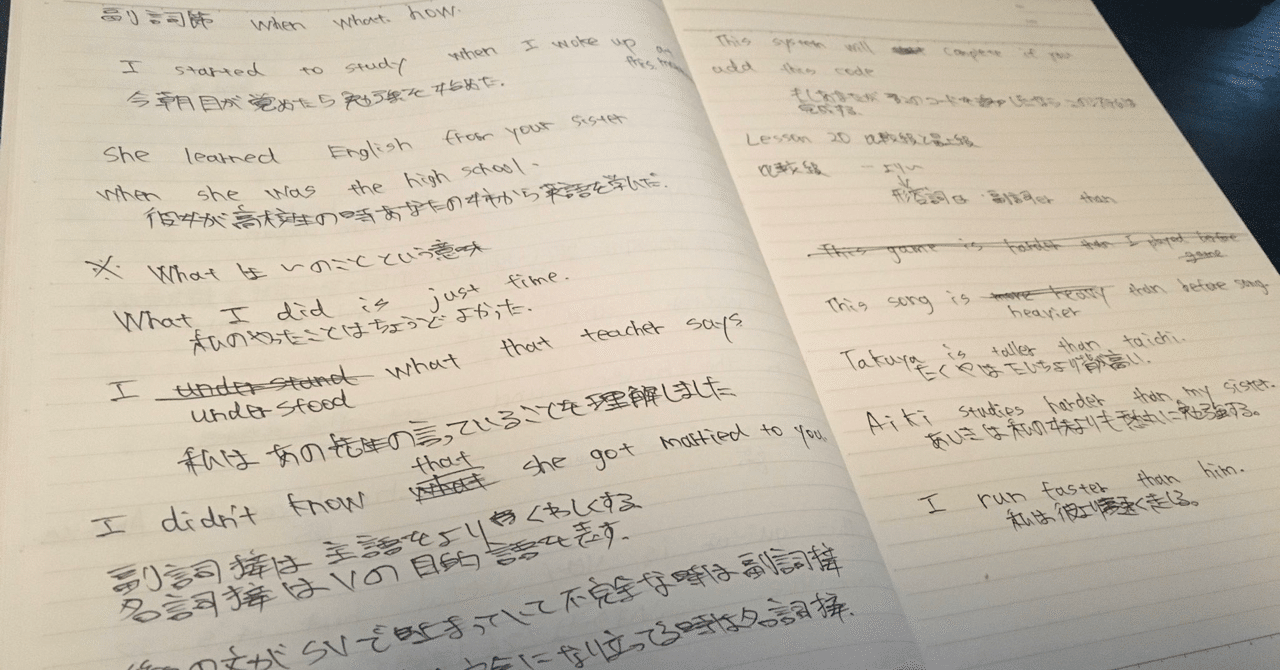 副詞節 when what. how.
I started to study when I woke up on this
今朝目が覚めたら勉強を始めた.
She learned English from your sister
when she was the high school.
彼女が高校生の時あなたの姉から英語を学んだ.
※ What は 〜のことという意味
What I did is just time.
私のやったことはちょうどよかった.
I under stand what that teacher says
under stood
私はあの先生の言っていることを理解しました
that
I didn't know what she got married to you.
副詞接は主語をよりくわしくする
名詞接はVの目的語を表す.
の文がSVで止まっていて不完全な時は副詞接
になり立ってる時は名詞接.
This system will complete if you
add this code
もしあなたがこのコードを したなら
完成する.
Lesson 20 比較級と最上級
比較級 …より〜
形容詞er 副詞er than
This game is harder than I played before
game
This song is more heavy than before song.
heavier
Takuya is taller than taichi.
たくやはたいちより背高い.
Aiki studies harder than my sister.
あいきは私の妹よりも に勉強する。
I run faster than him.
私は彼より速く走る。